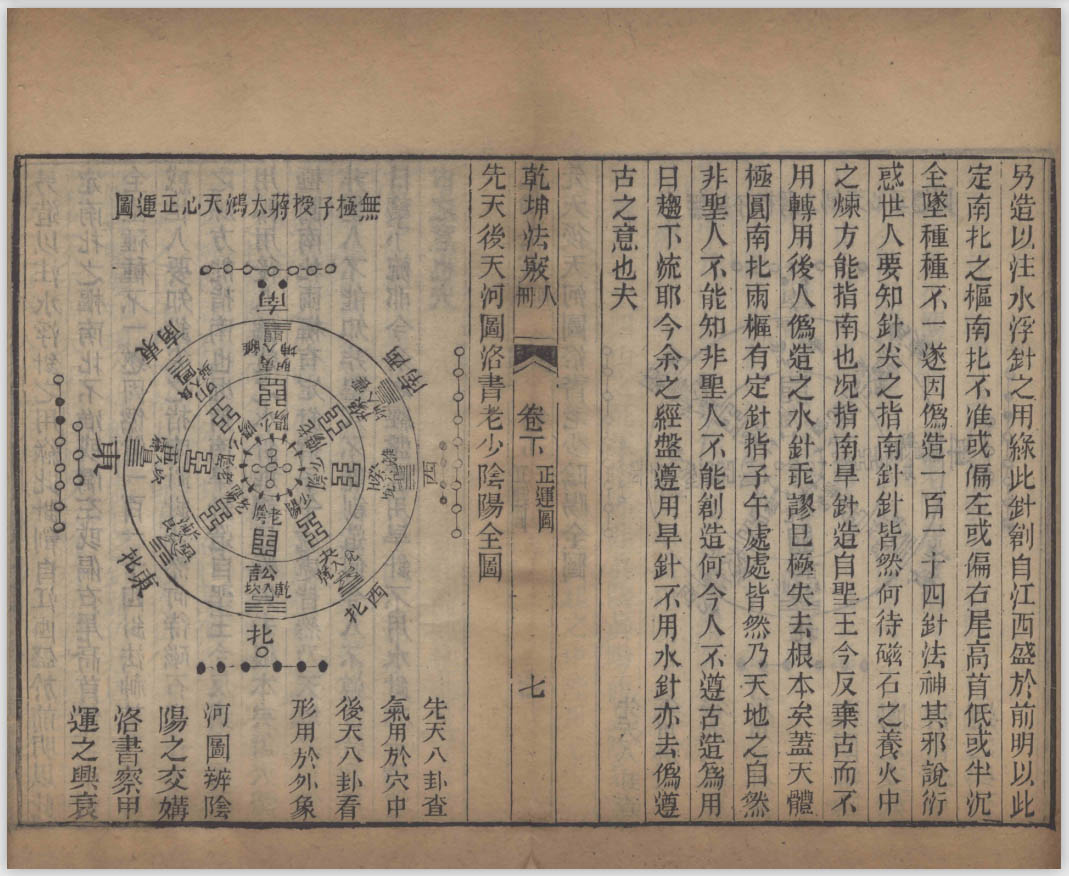 另造以注水浮針之用緣此針創自江西盛於前明以此
定南北之樞南北不准或偏左或偏右尾高首低或半沉
全墜種種不一遂因僞造一百二十四針法神其邪說衍
惑世人要知針尖之指南針針皆然何待磁石之養火中
之煉方能指南也况指南旱針造自聖王今反棄古而不
用轉用後人僞造之水針乖謬已極失去根本矣蓋天體
極圓南北兩樞有定針指子午處處皆然乃天地之自然
非聖人不能知非聖人不能創造何今人不遵古造爲用
日趨下流耶今余之經盤遵用旱針不用水針亦去僞遵
古之意也夫
乾坤法竅 八冊 卷下 正運圖 七
先天後天河圖洛書老少陰陽全圖
無極子授蔣太鴻天心正運圖
南
西南
西
西北
北
東北
東
東南
先天八卦查
氣用於穴中
後天八卦看
形用於外象
河圖辨陰
陽之交媾
洛書察甲
運之興衰